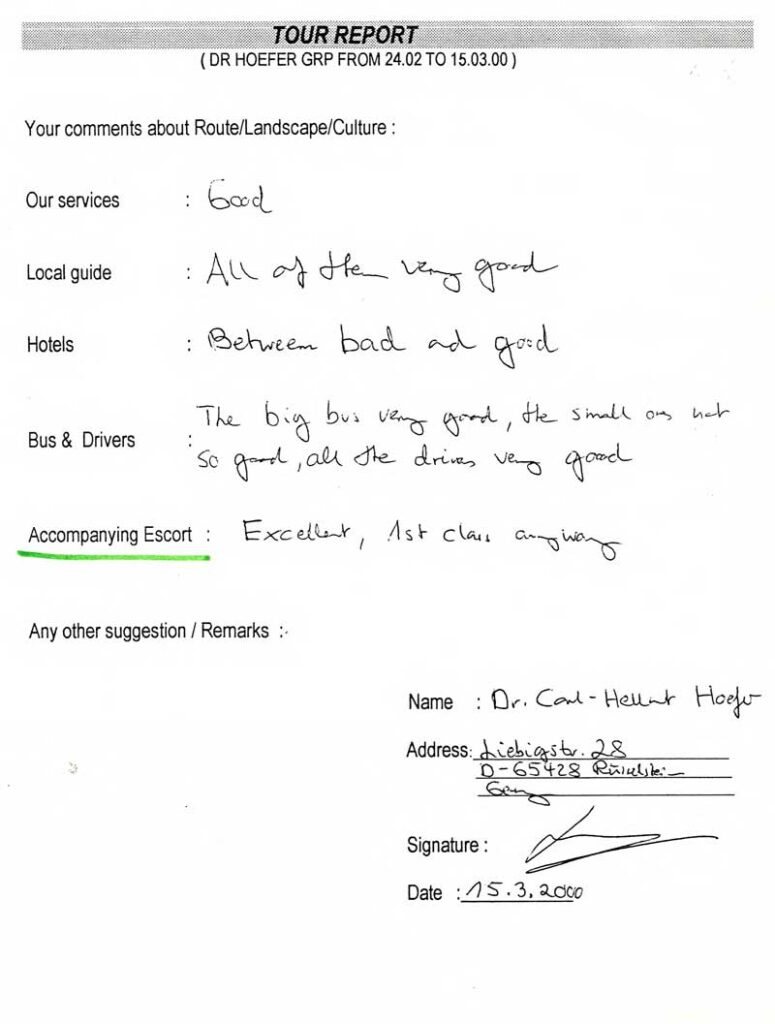 TOUR REPORT
( DR HOEFER GRP FROM 24.02 TO 15.03.00 )
Your comments about Route/Landscape/Culture :
Our services : Good
Local guide : All of them very good
Hotels : Between bad ad good
The big bus very good, the small ones not
Bus & Drivers :
so good, all the drives very good
Accompanying Escort : Excellent, 1st class anyway
Any other suggestion / Remarks :
Name : Dr. Carl-Hellmut Hoefer
Address: Liebigstr. 28
D-65428
Signature :
Date : 15.3.2000